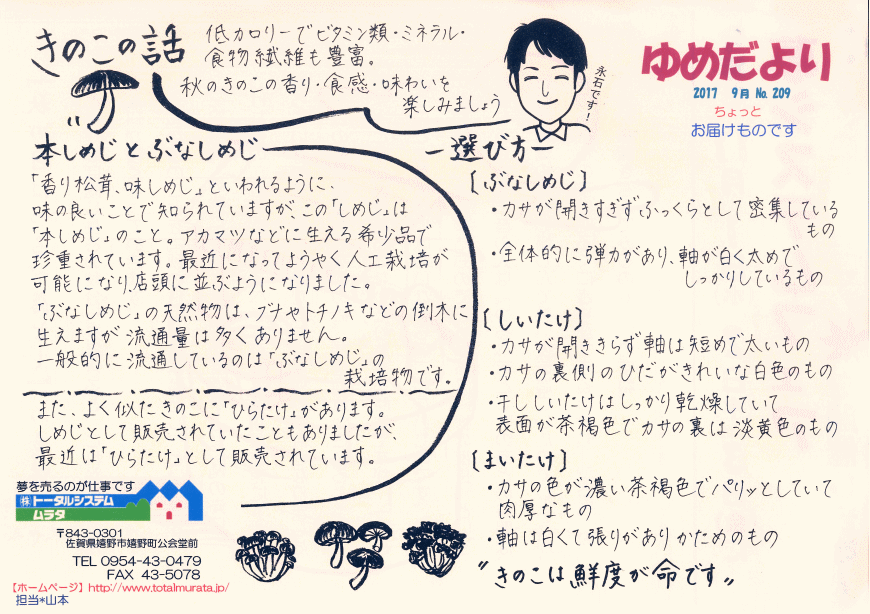 きのこの話
低カロリーでビタミン類・ミネラル・
食物繊維も豊富。
秋のきのこの香り・食感・味わいを
楽しみましょう
永石です!
ゆめだより
2017 9月 No. 209
ちょっと
お届けものです
本しめじとぶなしめじ
「香り松茸、味しめじ」といわれるように、
味の良いことで知られていますが、この「しめじ」は
「本しめじ」のこと。アカマツなどに生える希少品で
珍重されています。最近になってようやく人工栽培が
可能になり、店頭に並ぶようになりました。
「ぶなしめじ」の天然物は、ブナやトチノキなどの倒木に
生えますが流通量は多くありません。
一般的に流通しているのは「ぶなしめじ」の
栽培物です。
また、よく似たきのこに「ひらたけ」があります。
しめじとして販売されていたこともありましたが、
最近は「ひらたけ」として販売されています。
ー選び方ー
〔ぶなしめじ〕
・カサが開きすぎずふっくらとして密集している
もの
・全体的に弾力があり、軸が白く太めで
しっかりしているもの
〔しいたけ〕
・カサが開ききらず軸は短めで太いもの
・カサの裏側のひだがきれいな白色のもの
・干ししいたけはしっかり乾燥していて
表面が茶褐色でカサの裏は淡黄色のもの
〔まいたけ〕
・カサの色が濃い茶褐色でパリッとしていて
肉厚なもの
・軸は白くて張りがありかためのもの
"きのこは鮮度が命です"
夢を売るのが仕事です
㈱トータルシステム
ムラタ
〒843-0301
佐賀県嬉野市嬉野町公会堂前
TEL 0954-43-0479
FAX 43-5078
【ホームページ】http://www.totalmurata.jp/
担当*山本